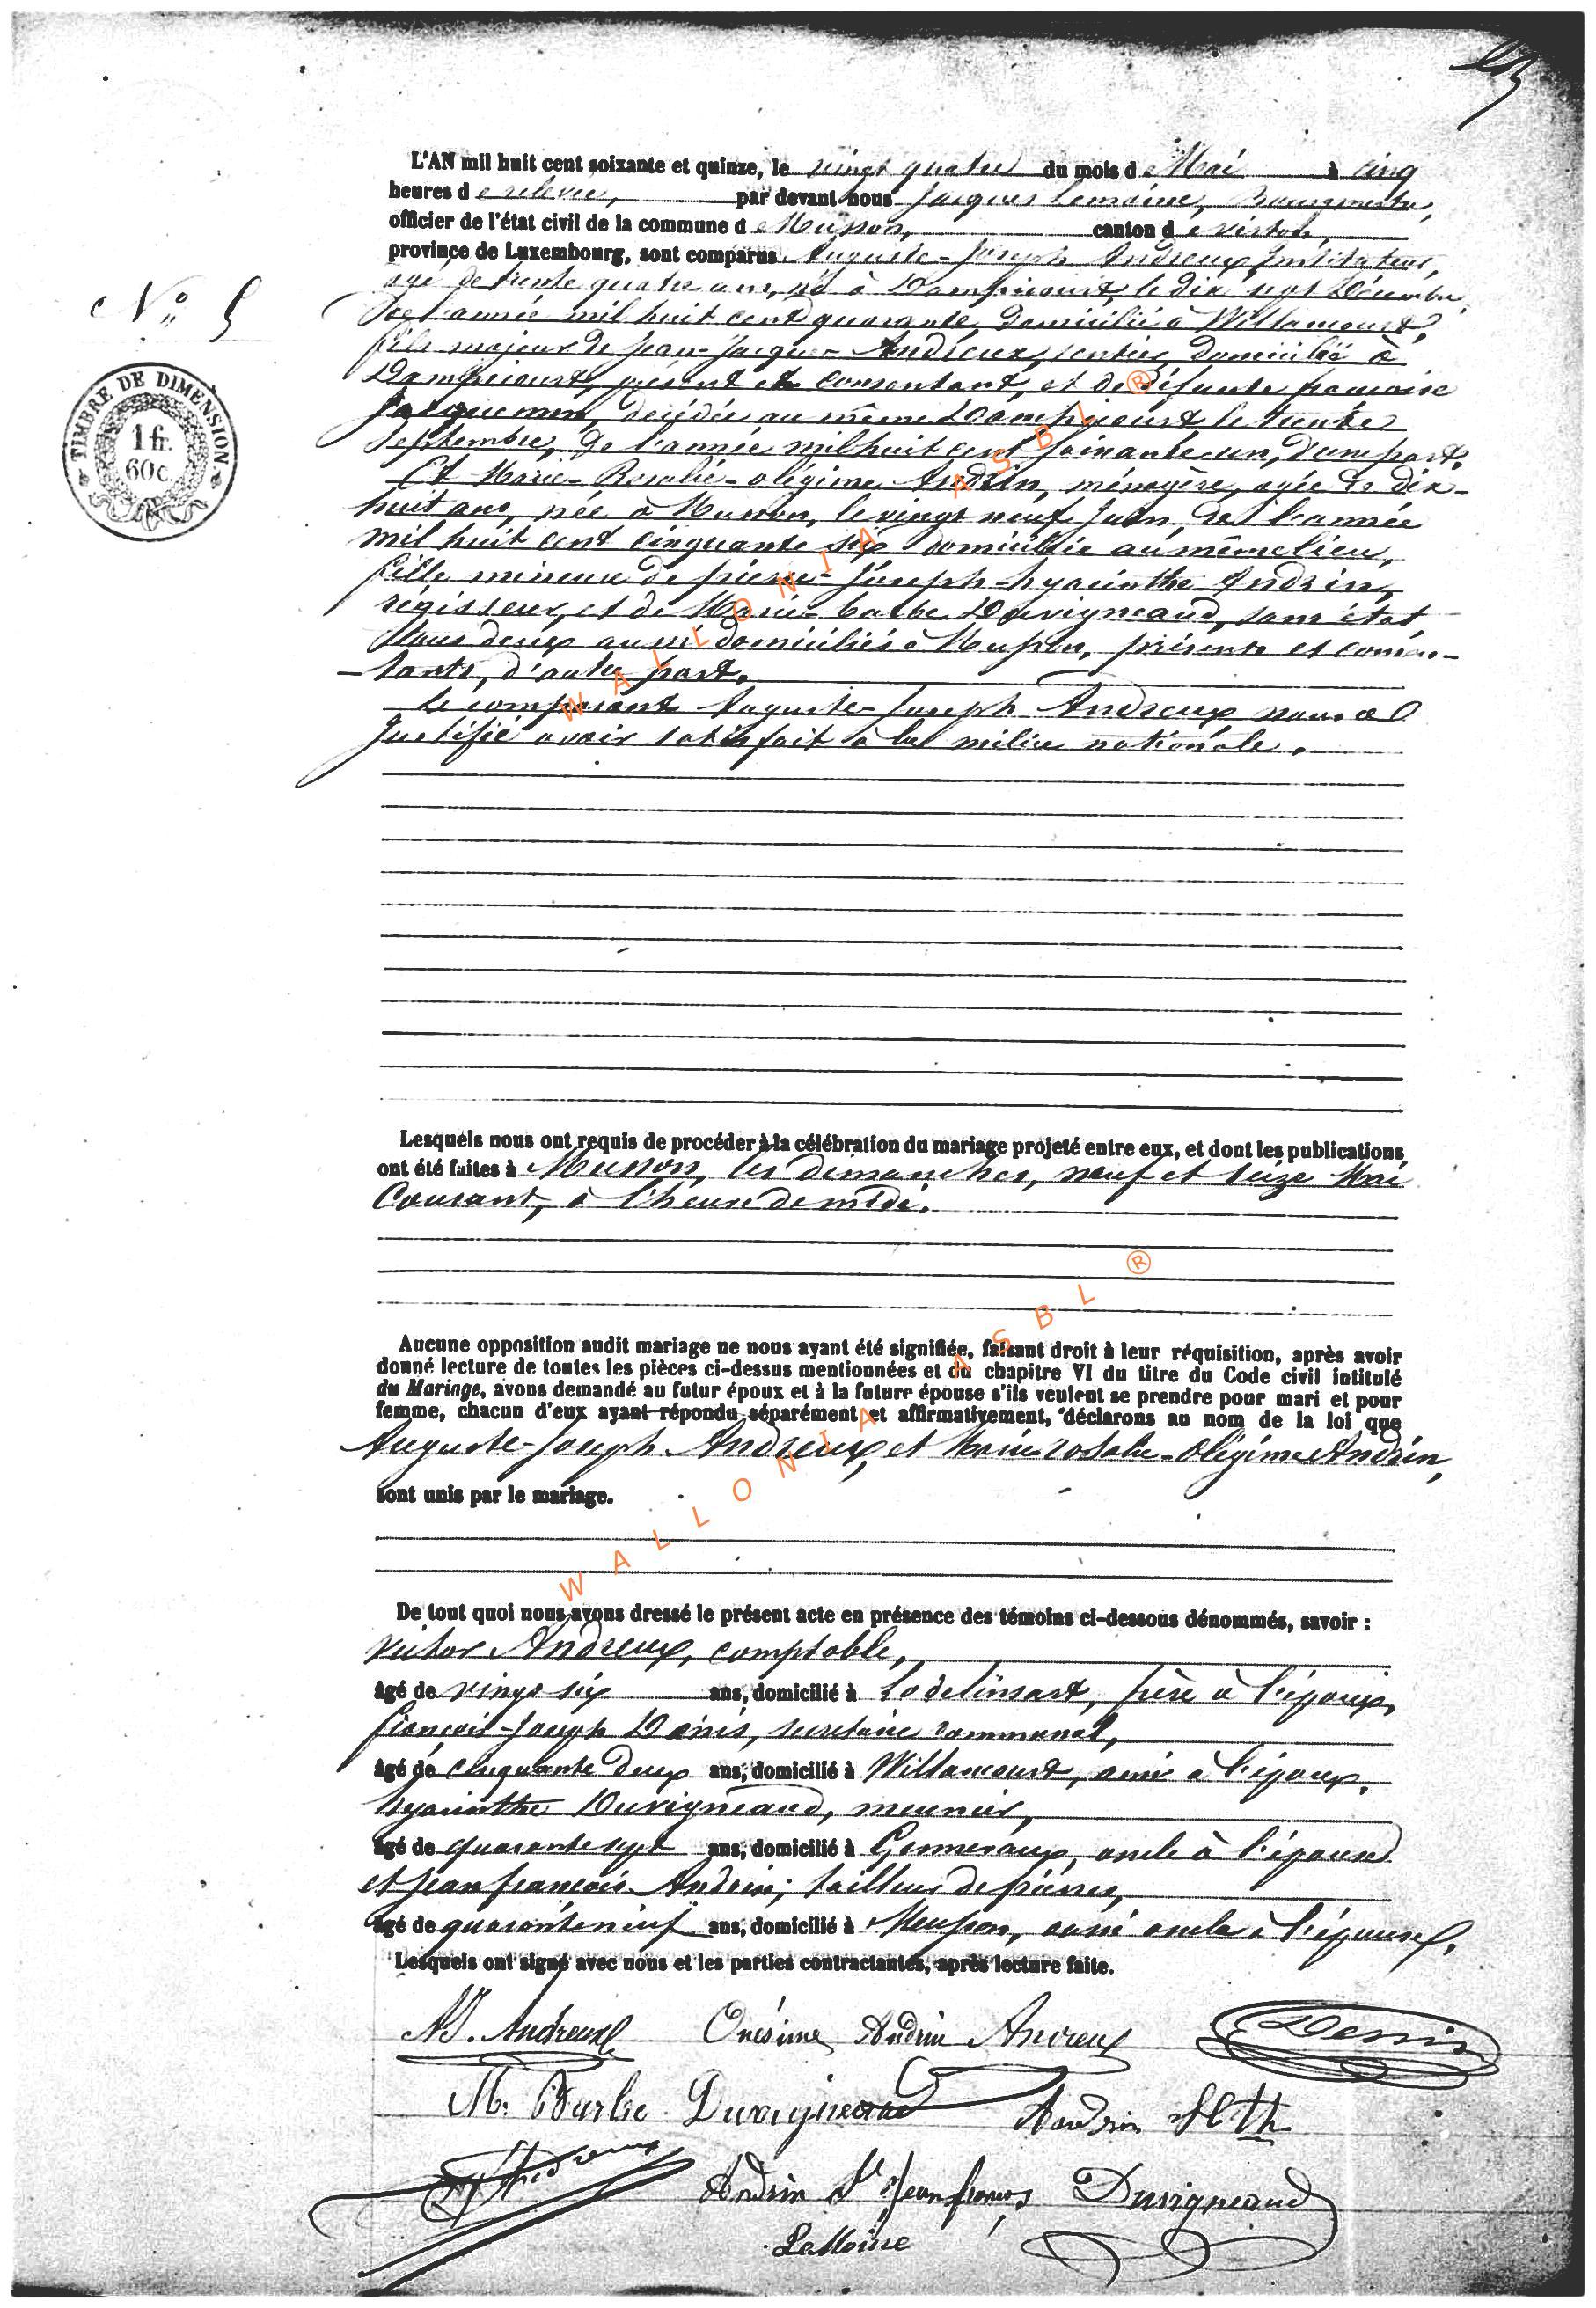 L'AN mil huit cent soixante et quinze, le vingt quatre du mois de Mai à cinq
heures de relevée, par devant nous Jacques Lemoine, Bourgmestre,
officier de l'état civil de la commune de Musson, canton de virton,
province de Luxembourg, sont comparus Auguste-Joseph Andreux, instituteur,
agé de trente quatre ans, né à Dampicourt, le dix sept Décembre
de l'année mil huit cent quarante, domicilié à Willancourt,
N° 5
fils majeur de Jean-Jacques Andreux, rentier, domicilié à
Dampicourt, présent et consentant, et de défunte françoise
Jacquemin, décédée au même Dampicourt le trente
TIMBRE DE DIMENSION
1 fr.
60c.
Septembre, de l'année mil huit cent soixante un, d'une part,
Et Marie-Rosalie-olégime Andrin, ménagère, agée de dix-
huit ans, née à Musson, le vingt neuf Juin, de l'année
mil huit cent cinquante six domiciliée au même lieu,
fille mineure de pierre-Joseph-hyacinthe Andrin,
régisseur, et de Marie-barbe Duvigneaud, sans état,
tous deux aussi domiciliés à Musson, présents et consen-
tants, d'autre part.
Le comparant Auguste-Joseph Andreux nous a
Justifié avoir satisfait à la milice nationale.
Lesquels nous ont requis de procéder à la célébration du mariage projeté entre eux, et dont les publications
ont été faites à Musson, les dimanches, neuf et seize Mai
Courant, à l'heure de midi.
Aucune opposition audit mariage ne nous ayant été signifiée, faisant droit à leur réquisition, après avoir
donné lecture de toutes les pièces ci-dessus mentionnées et du chapitre VI du titre du Code civil intitulé
du Mariage, avons demandé au futur époux et à la future épouse s'ils veulent se prendre pour mari et pour
femme, chacun d'eux ayant répondu séparément et affirmativement, déclarons au nom de la loi que
Auguste-Joseph Andreux, et Marie rosalie-Olégime Andrin,
sont unis par le mariage.
De tout quoi nous avons dressé le présent acte en présence des témoins ci-dessous dénommés, savoir :
Victor Andreux, comptable,
âgé de vingt six ans, domicilié à Lodelinsart, frère à l'époux,
françois-Joseph Denis, secrétaire communal,
âgé de cinquante deux ans, domicilié à Willancourt, ami à l'époux,
hyacinthe Duvigneaud, meunier,
âgé de quarante sept ans, domicilié à Gomeraux, oncle à l'épouse
et Jean françois Andrin, tailleur de pierres,
âgé de quarante neuf ans, domicilié à Musson, aussi oncle à l'épouse.
Lesquels ont signé avec nous et les parties contractantes, après lecture faite.
AJ. Andreux Onésime Andrin Andreux Denis
M. Barbe Duvigneaud Andrin
Andrin Jean françois Duvigneaud
LeMoine
WALLONIA ASBL ®
WALLONIA ASBL ®